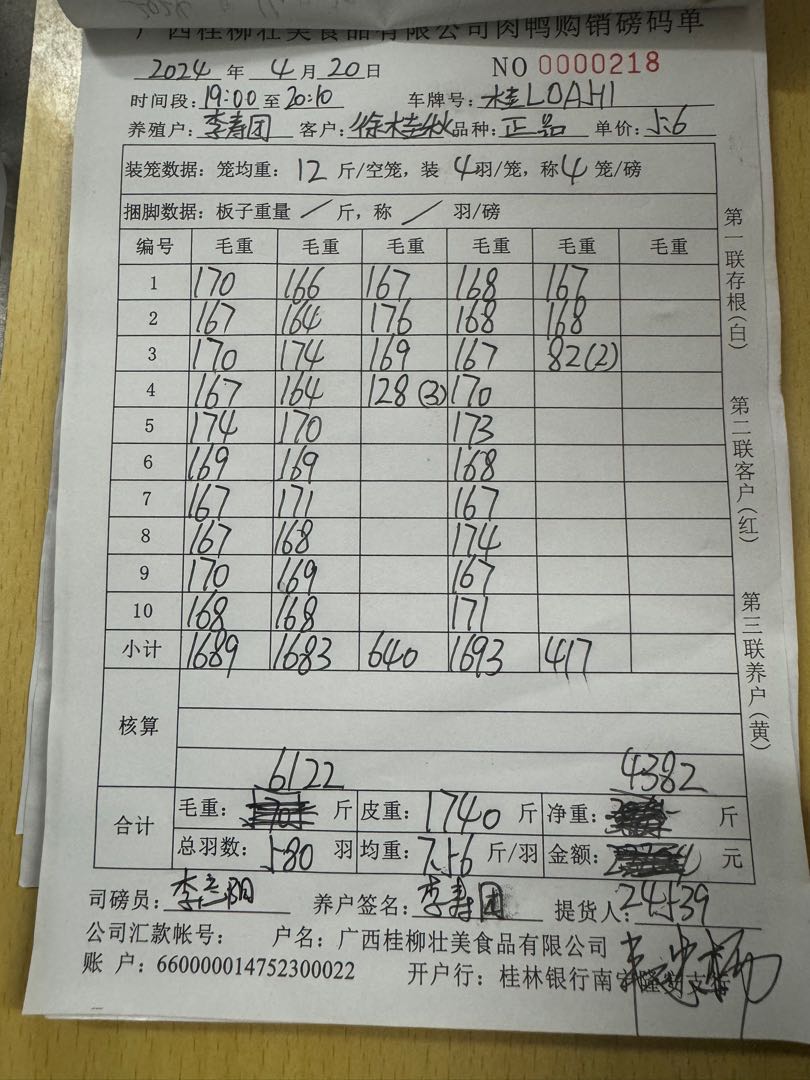 广西桂柳壮美食品有限公司肉鸭购销磅码单
2024 年 4 月 20 日 NO 0000218
时间段: 19:00 至 20:10 车牌号: 桂LDAJH1
养殖户: 李寿团 客户: 徐桂秋 品种: 正品 单价: 5.6
装笼数据: 笼均重: 12 斤/空笼, 装 4 羽/笼, 称 4 笼/磅
捆脚数据: 板子重量 / 斤, 称 / 羽/磅
编号 毛重 毛重 毛重 毛重 毛重 毛重
1 170 166 167 168 167
2 167 164 176 168 168
3 170 174 169 167 82(2)
4 167 164 128(3) 170
5 174 170 173
6 169 169 168
7 167 171 167
8 167 168 174
9 170 169 167
10 168 168 171
小计 1689 1683 640 1693 417
核算
6122 4382
合计
毛重: 斤 皮重: 1740 斤 净重: 斤
总羽数: 580 羽 均重: 7.56 斤/羽 金额: 元
24539
司磅员: 养户签名: 李寿团 提货人:
公司汇款帐号: 户名: 广西桂柳壮美食品有限公司
账 户: 660000014752300022 开户行: 桂林银行南宁隆安支行
第一联存根(白)
第二联客户(红)
第三联养户(黄)